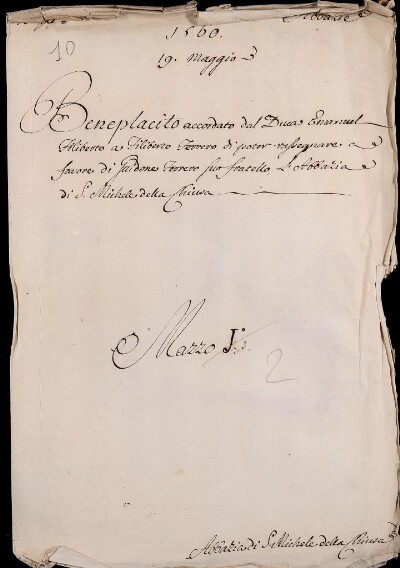 Abbazie
1560.
10
19. Maggio
Beneplacito accordato dal Duca Emanuel
Filiberto a Filiberto Ferrero di poter rassegnare a
favore di Guidone Ferrero suo fratello, l'Abbazia
di S. Michele della Chiusa
Mazzo 1.°
2
Abbazia di S. Michele della Chiusa